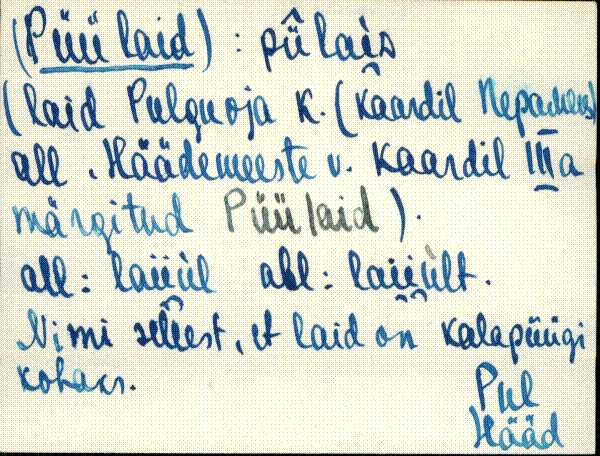 (Püü laid) : pǖlai̬s
(laid Pulgnoja k. (kaardil Nepaders)
all. Häädemeeste v. Kaardil III a
märgitud Püülaid).
all: laiiul abl: laiiult.
Nimi sellest, et laid on kalapüügi
kohaks.
Pul
Hääd